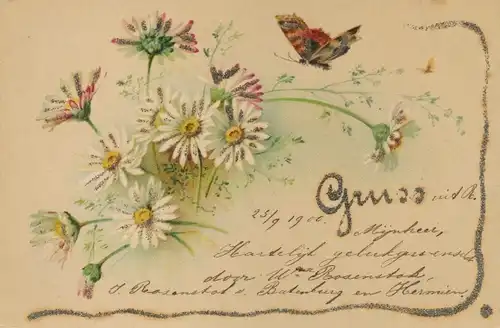 Gruss uit R.
25/9 1900.
Mijnheer,
Hartelijk gelukgewenscht
door Wme Rosenstok,
J. Rosenstok v. Batenburg en Hermien.